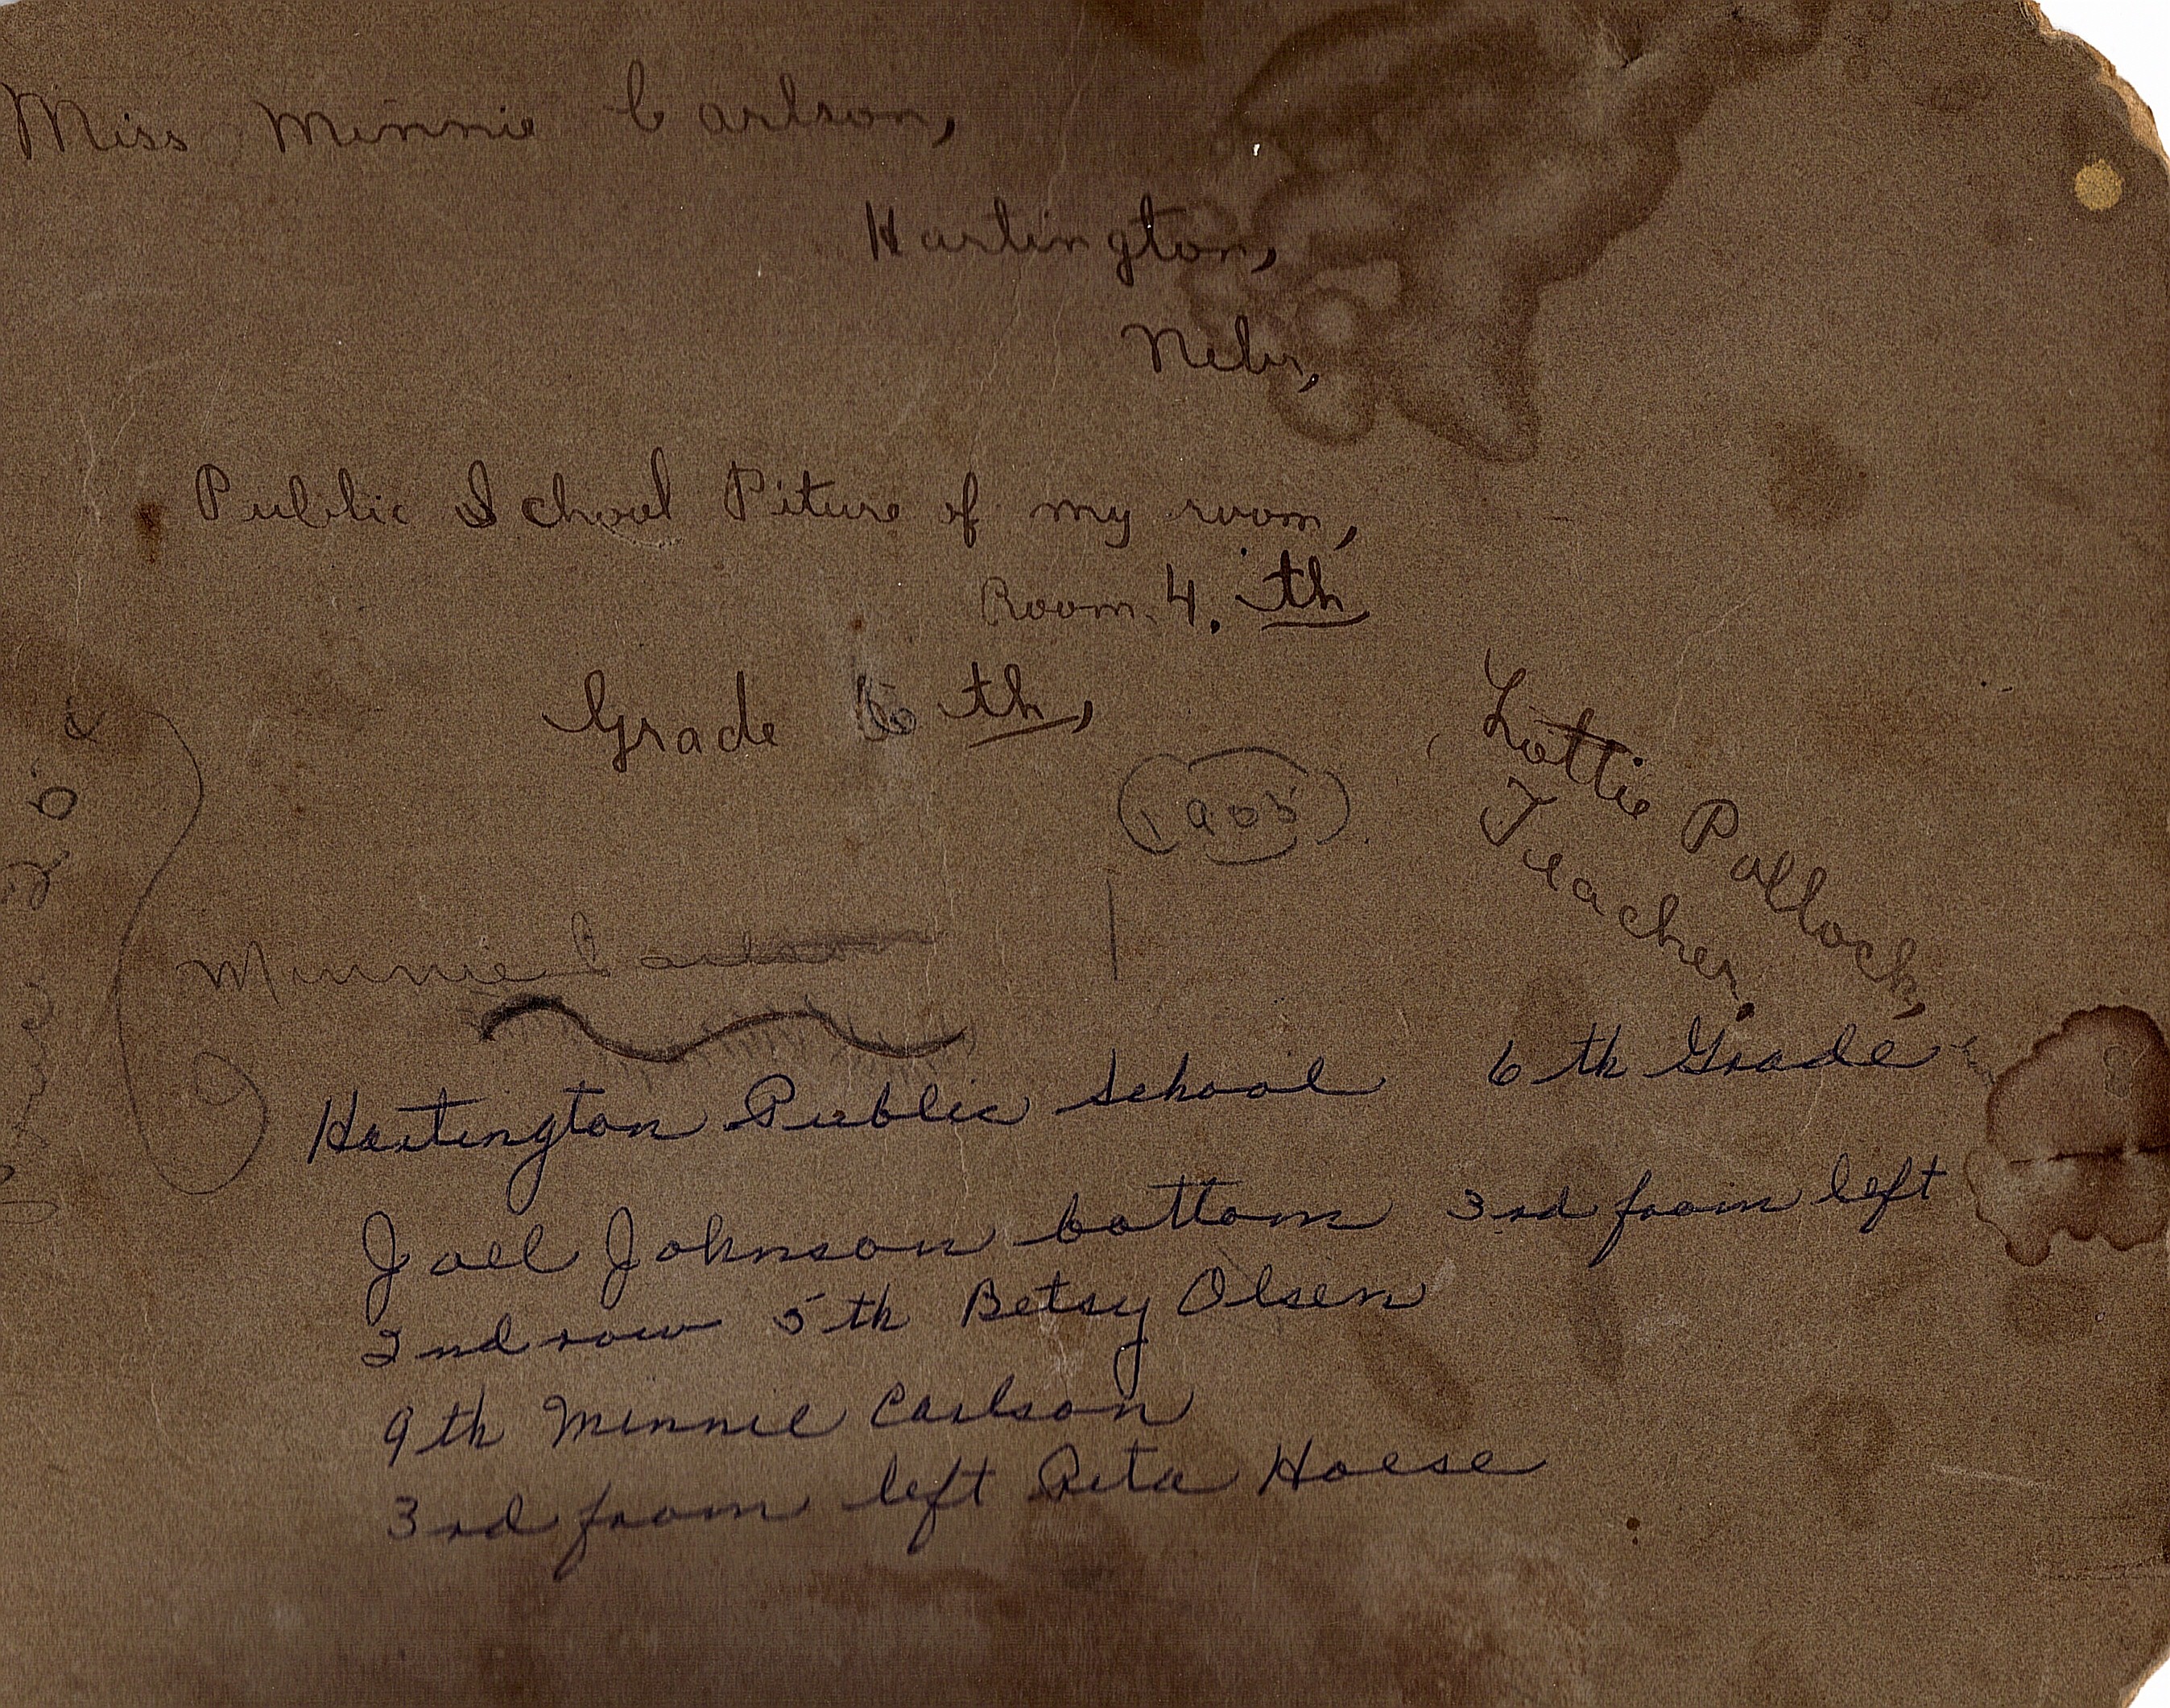 Miss Minnie Carlson,
Hartington,
Nebr,
Public School Piture of my room,
Room 4. th
Grade 6 th,
1905
Lottie Pollock,
Teacher.
Minnie Carlson
Hartington Public School 6th Grade
Joel Johnson bottom 3rd from left
2nd row 5th Betsy Olsen
9th Minnie Carlson
3rd from left Reta Hoese